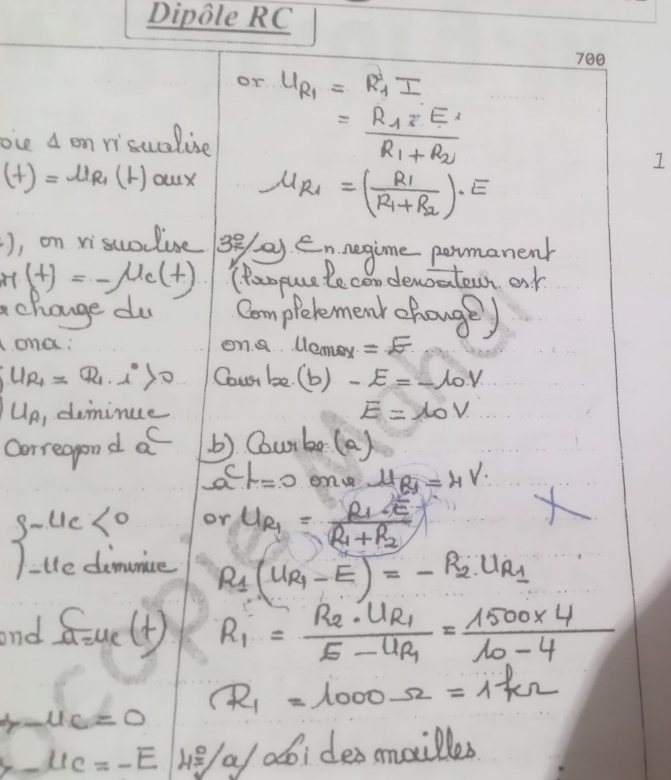 Dipôle RC
700
oie 1 on visualise
(t) = uR1(t) aux
), on visualise
(t) = -uc(t)
charge du
ona:
UR1 = R1.i > 0
UR1 diminue
Correspond à
-uc < 0
-uc diminue
ond à -uc(t)
-uc = 0
-uc = -E
or UR1 = R1 I
= R1 . E / R1 + R2
UR1 = (R1 / R1+R2) . E
3°/a). En regime permanent
(lorsque le condensateur est
Completement chargé)
on a ucmax = E
Courbe (b) - E = -10V
E = 10V
b) Courbe (a)
à t=0 on a UR1 = 4V.
or UR1 = R1 . E / R1 + R2
R1 (UR1 - E) = - R2. UR1
R1 = R2 . UR1 / E - UR1 = 1500 x 4 / 10 - 4
R1 = 1000 Ω = 1kΩ
4°/a/ Loi des mailles
1
copie Mahdi